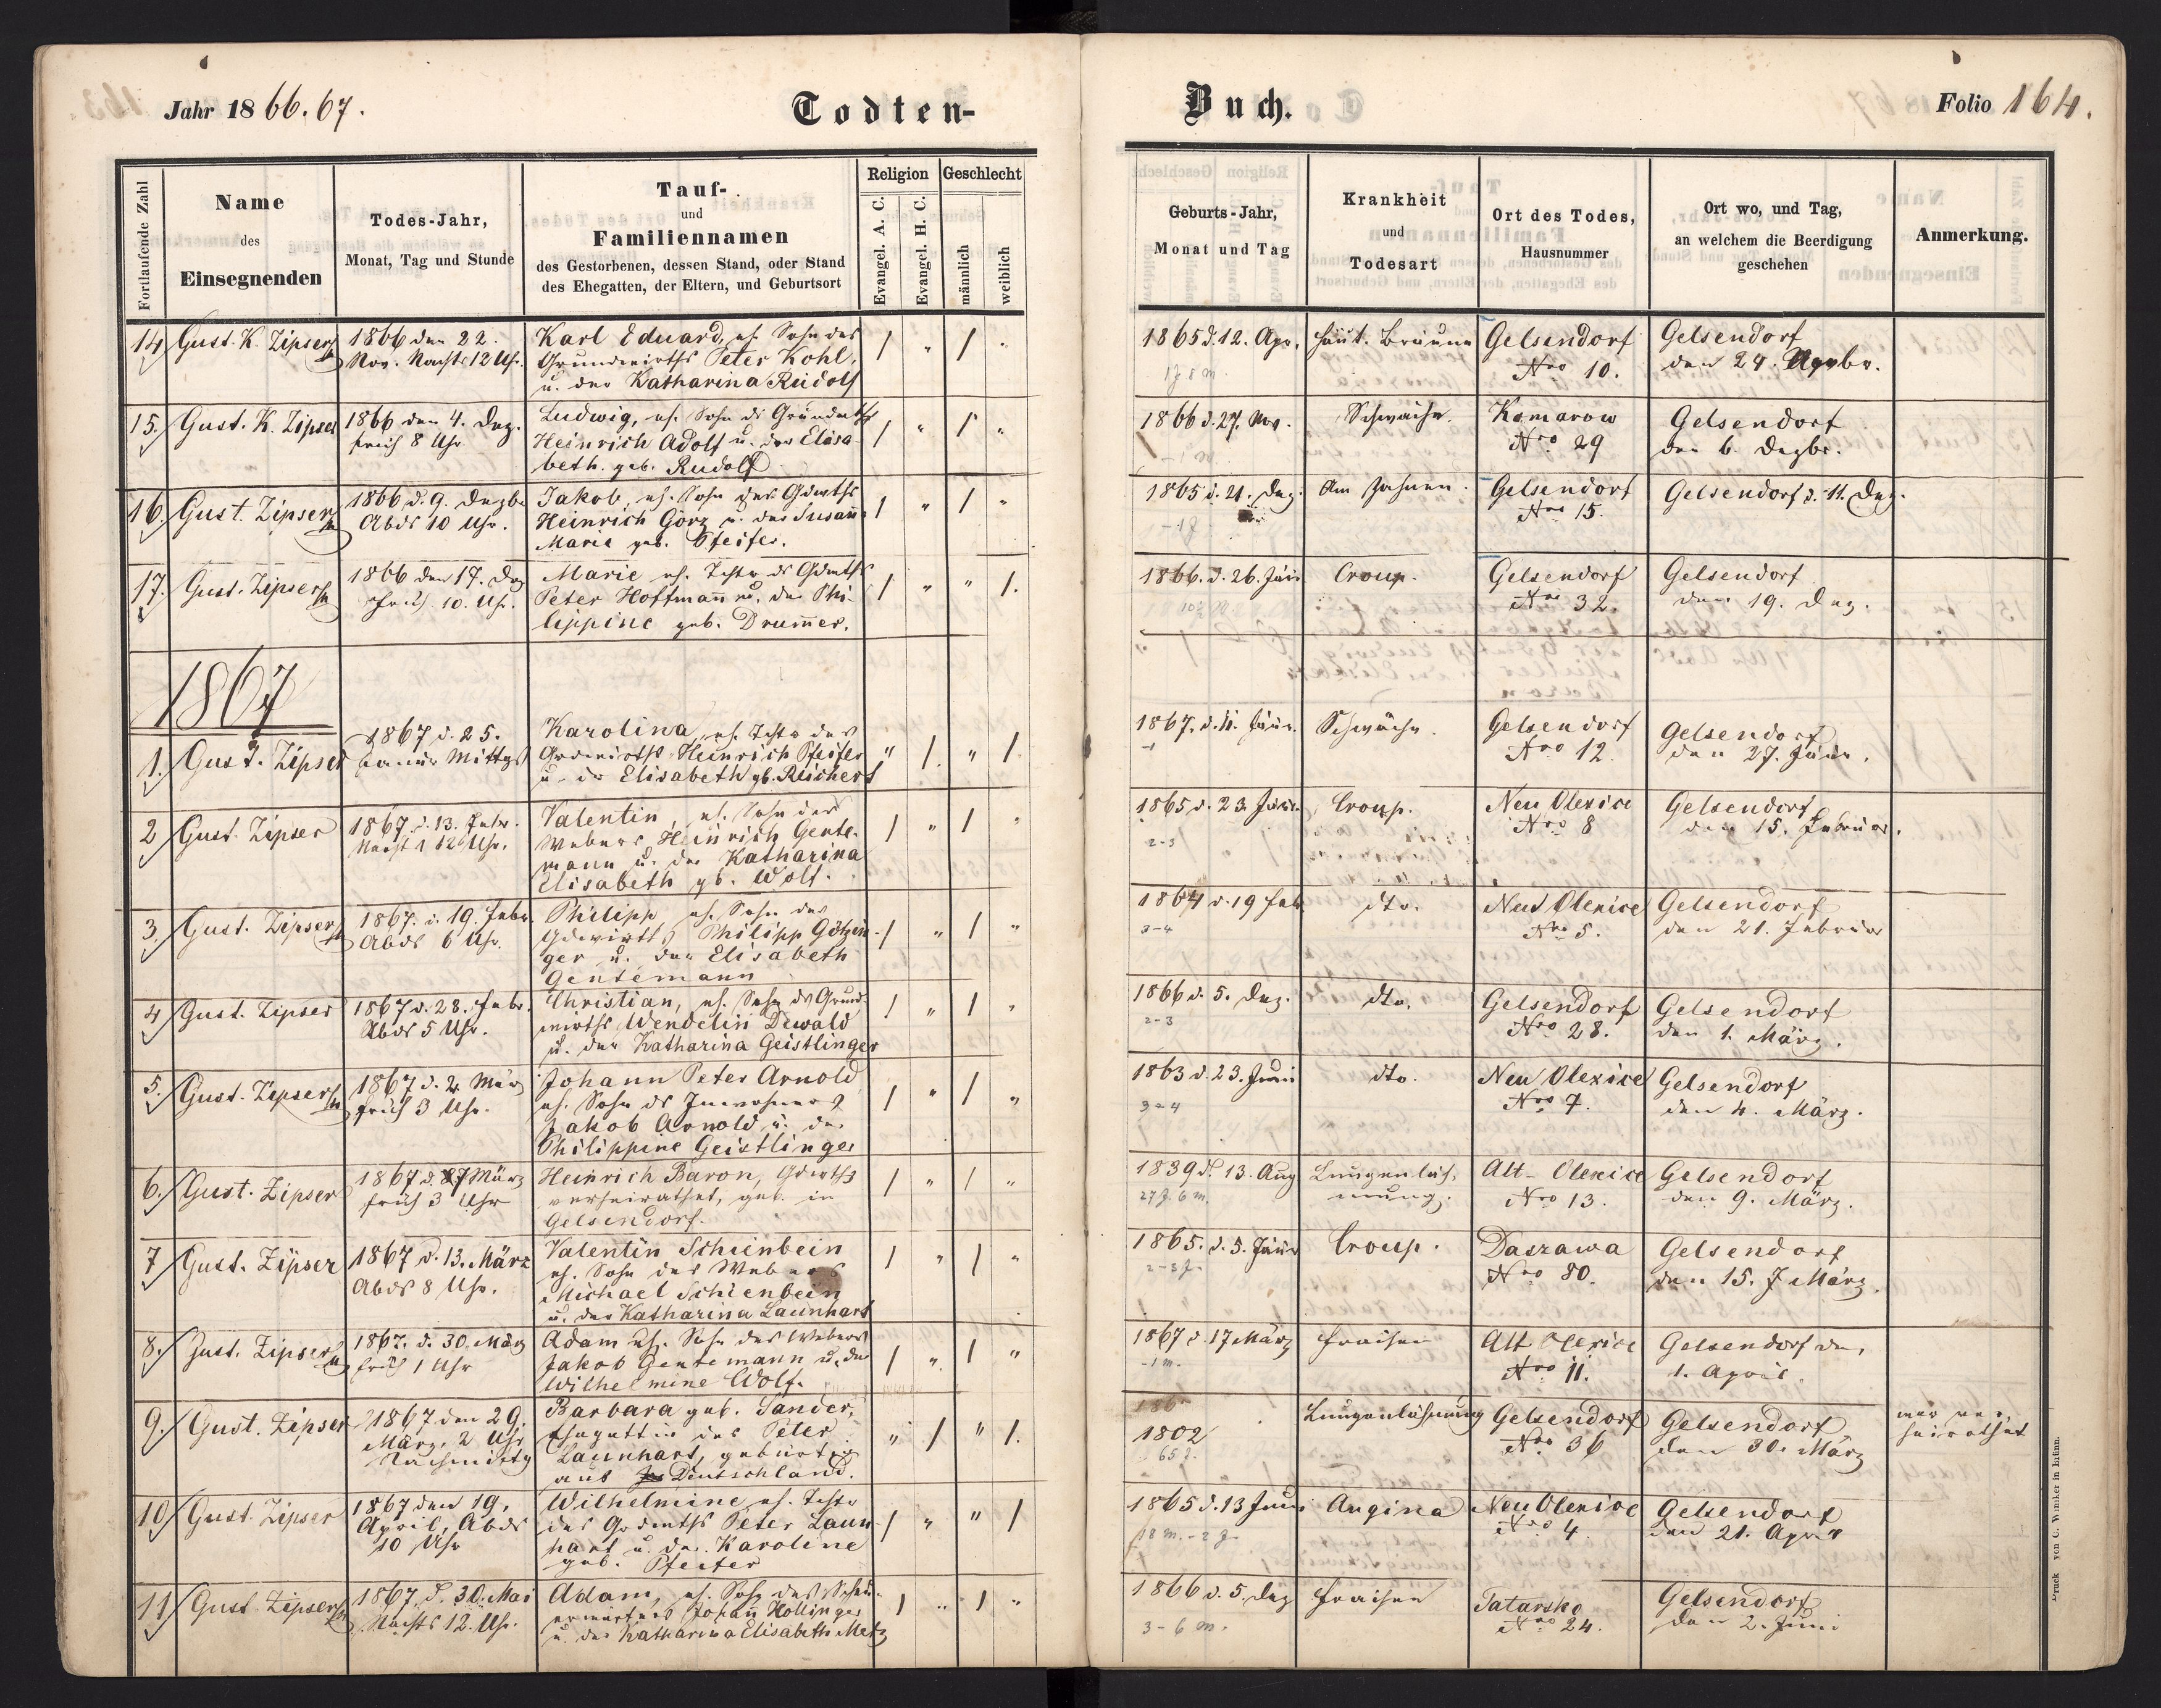 Jahr 1866.67.
Todten-
Buch.
Folio 164.
Fortlaufende Zahl
Name
des
Einsegnenden
Todes-Jahr,
Monat, Tag und Stunde
Tauf-
und
Familiennamen
des Gestorbenen, dessen Stand, oder Stand
des Ehegatten, der Eltern, und Geburtsort
Religion
Evangel. A. C.
Evangel. H. C.
Geschlecht
männlich
weiblich
Geburts-Jahr,
Monat und Tag
Krankheit
und
Todesart
Ort des Todes,
Hausnummer
Ort wo, und Tag,
an welchem die Beerdigung
geschehen
Anmerkung.
14 Gust. K. Zipser 1866 den 22. Nov. Nachts 12 Uhr.
Karl Eduard, eh. Sohn des
Grundwirths Peter Kohl,
u. der Katharina Rudolf
/ " / "
1865 d. 12. Apr. 1 J 8 m. häut. Bräune Gelsendorf Nro 10. Gelsendorf den 24. Novbr.
15. Gust. K. Zipser 1866 den 4. Dez. früh 8 Uhr
Ludwig, eh. Sohn ds Grundwths
Heinrich Adolf u. der Elisa-
beth. geb. Rudolf
/ " / "
1866 d. 27. Nov. - 1 m. Schwäche. Komarow Nro 29 Gelsendorf den 6. Dezbr.
16. Gust. Zipser 1866 d. 9. Dezbr Abds 10 Uhr.
Jakob, eh. Sohn des Gdwths
Heinrich Görz u. der Susan̄
Maria geb. Pfeifer.
/ " / "
1865 d. 21. Dez. - 1 J Am Zahnen. Gelsendorf Nro 15. Gelsendorf d. 11. Dez.
17. Gust. Zipser 1866 den 17. Dez Früh 10. Uhr.
Marie eh. Tchtr ds Gdwths
Peter Hoffman̄ u. der Phi-
lippine geb. Drum̄er.
/ " " /.
1866. d. 26. Jän Croup. Gelsendorf Nro 32. Gelsendorf den 19. Dez.
1867
1. Gust. Zipser 1867 d. 25. Januar Mittgs
Karolina, eh. Tchtr des
Grdwirths Heinrich Pfeifer
u. der Elisabeth gb. Reichert
" /. " /.
1867. d. 11. Jänr. Schwäche. Gelsendorf Nro 12. Gelsendorf den 27. Jänr.
2 Gust. Zipser 1867 d. 13. Febr. Nachts 12 Uhr.
Valentin, eh. Sohn des
Webers Heinrich Gente-
mann u. der Katharina
Elisabeth gb. Wolf.
/ " / "
1865 d. 23. 2-3 Croup. Neu Olexice Nro 8 Gelsendorf den 15. Februar.
3. Gust. Zipser 1867. d. 19. Febr. Abds 6 Uhr.
Philipp, eh. Sohn des
Gdwirths Philipp Götzin-
ger u. der Elisabeth
Gentemann
/ " / "
1864 d. 19 Feb. 3-4 dto. Neu Olexice Nro 5. Gelsendorf den 21. Februar
4 Gust. Zipser 1867 d. 28. Febr. Abds 5 Uhr.
Christian, eh. Sohn ds Grund-
wirths Wendelin Dewald
u. der Katharina Geistlinger
/ " / "
1866 d. 5. Dez. 2-3 dto. Gelsendorf Nro 28. Gelsendorf den 1. März.
5. Gust. Zipser 1867 d. 2. März früh 3 Uhr.
Johann Peter Arnold
eh. Sohn ds Inwohners
Jakob Arnold u. der
Philippine Geistlinger
/ " / "
1863 d. 23. Juni 3-4 dto. Neu Olexice Nro 7. Gelsendorf den 4. März.
6. Gust. Zipser 1867 d. 7 März früh 3 Uhr
Heinrich Baron, Gdwths
verheirathet, geb. in
Gelsendorf.
/ " / "
1839 d. 13. Aug 27 J. 6 m. Lungenläh-
mung. Alt-Olexice Nro 13. Gelsendorf den 9. März.
7 Gust. Zipser 1867 d. 13. März Abds 8 Uhr.
Valentin Schienbein
eh. Sohn des Webers
Michael Schienbein
u. der Katharina Launhart
/ " / "
1865. d. 5. Jänr 2-3 J. Croup. Daszawa Nro 80. Gelsendorf den 15. März.
8. Gust. Zipser 1867. d. 30. März früh 1 Uhr
Adam eh. Sohn des Webers
Jakob Gentemann u. der
Wilhelmine Wolf.
/ " / "
1867 d. 17 März -1 m. Fraisen Alt Olexice Nro 11. Gelsendorf den 1. April.
9. Gust. Zipser 1867 den 29. März, 2 Uhr Nachmittg
Barbara geb. Sander,
Ehegattin des Peter
Launhart, gebürtig
aus Deutschland.
" / " /.
1802 65 J. Lungenlähmung Gelsendorf Nro 36 Gelsendorf den 30. März war ver-
heirathet
10 Gust. Zipser 1867 den 19. April, Abds 10 Uhr
Wilhelmine eh. Tchtr
des Grdwths Peter Laun-
hart u. der Karoline
geb. Pfeifer
/ " " /
1865 d. 13 Juni 18 m. - 2 J. Angina Neu Olexice Nro 4. Gelsendorf den 21. April
11 Gust. Zipser 1867. d. 30. Mai Nachts 12. Uhr.
Adam, eh. Sohn des
Johan̄ Hollinger
u. der Katharina Elisabeth Metz
/ " / "
1866 d. 5. Dez 3-6 m. Fraisen Tatarsko Nro 24. Gelsendorf den 2. Juni
Druck von C. Winiker in Brünn.